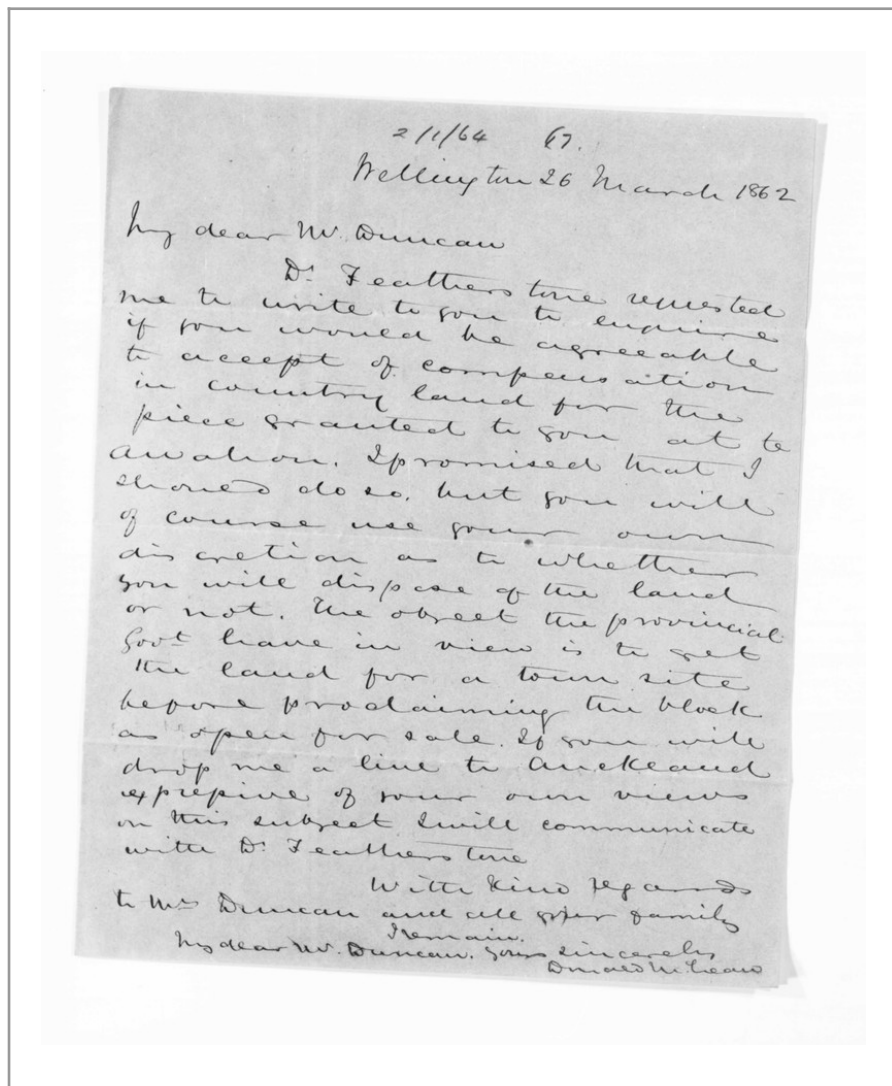 2/1/64 67.
Wellington 26 March 1862
My dear Mr. Duncan
Dr. Featherstone requested
me to write to you to enquire
if you would be agreeable
to accept of compensation
in country land for the
piece granted to you at te
Awahou. I promised that I
should do so, but you will
of course use your own
discretion as to whether
you will dispose of the land
or not. The object the provincial
Govt. have in view is to get
the land for a town site
before proclaiming the block
as open for sale. If you will
drop me a line to Auckland
expressive of your own views
on this subject I will communicate
with Dr. Featherstone
With kind regards
to Mrs Duncan and all your family
I remain.
My dear Mr. Duncan. yours sincerely
Donald McLean